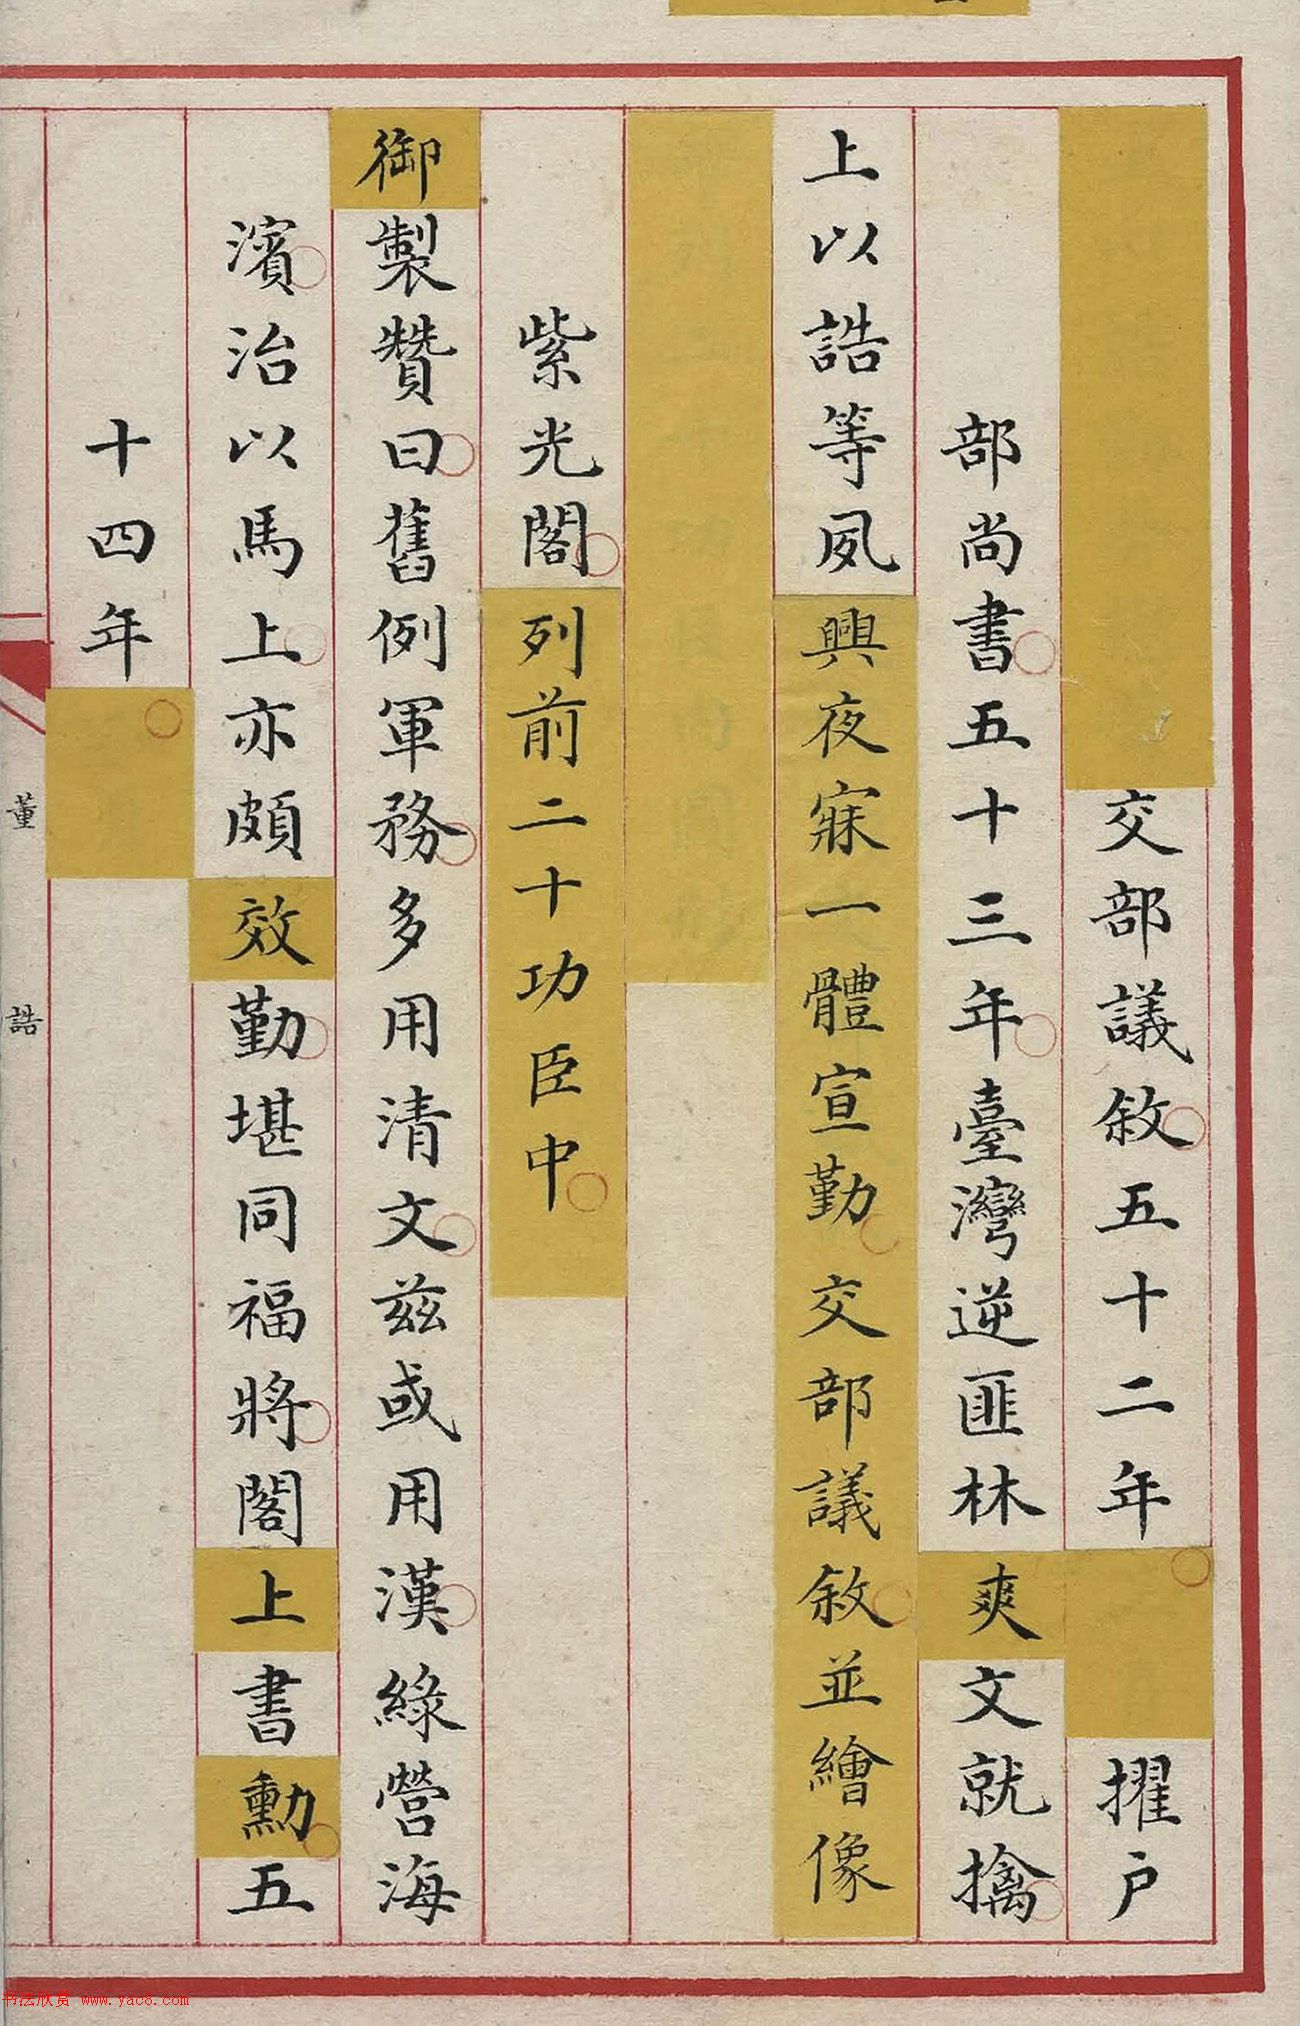 交部議敘五十二年擢戶
部尚書五十三年臺灣逆匪林爽文就擒
上以誥等夙興夜寐一體宣勤交部議敘並繪像
紫光閣列前二十功臣中
御製贊曰舊例軍務多用清文茲或用漢綠營海
濱治以馬上亦頗效勤堪同福將閣上書勳五
十四年
董誥
书法欣赏 www.yac8.com